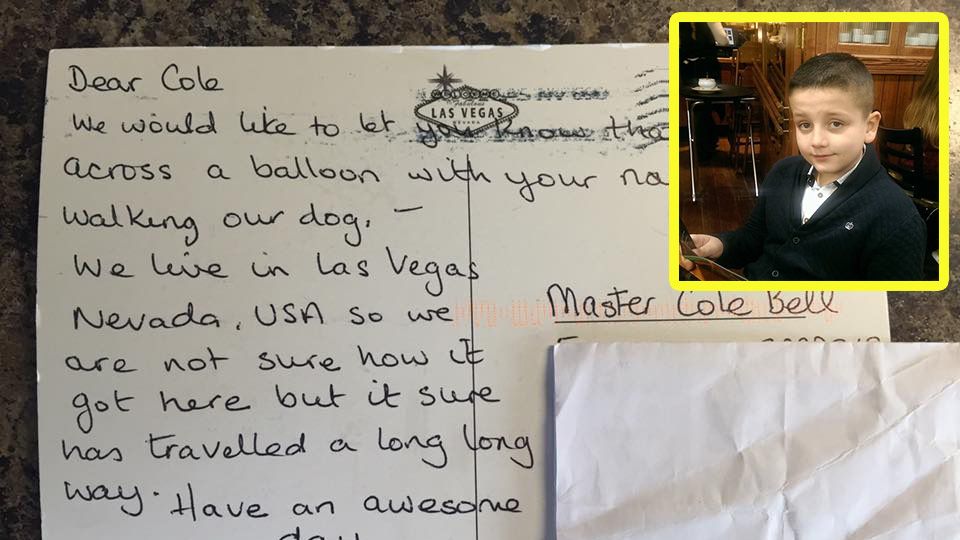 Dear Cole
WELCOME
To Fabulous
LAS VEGAS
NEVADA
We would like to let you know tha
across a balloon with your na
walking our dog. –
We live in Las Vegas
Nevada, USA so we
are not sure how it
got here but it sure
has travelled a long long
way. Have an awesome
day
Master Cole Bell